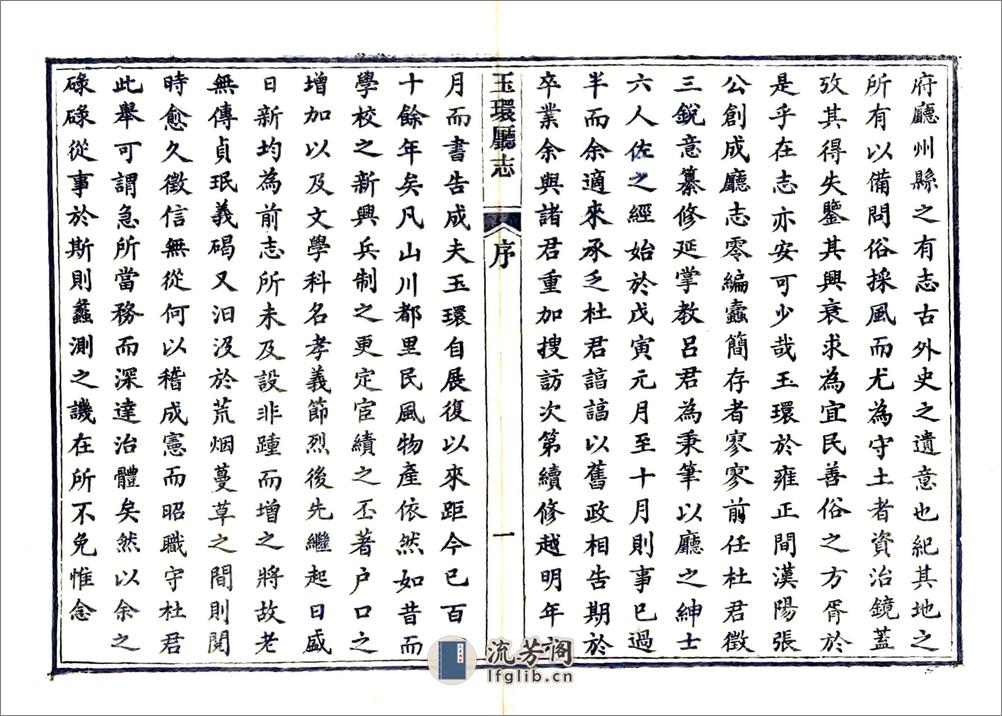 府廳州縣之有志古外史之遺意也紀其地之
所有以備問俗採風而尤為守土者資治鏡蓋
攷其得失鑒其興衰求為宜民善俗之方胥於
是乎在志亦安可少哉玉環於雍正間漢陽張
公創成廳志零編蠹簡存者寥寥前任杜君徵
三銳意纂修延掌教呂君為秉筆以廳之紳士
六人佐之經始於戊寅元月至十月則事已過
半而余適來承乏杜君諄諄以舊政相告期於
卒業余與諸君重加搜訪次第續修越明年
玉環廳志
序
一
月而書告成夫玉環自展復以來距今已百
十餘年矣凡山川都里民風物產依然如昔而
學校之新興兵制之更定宦績之丕著户口之
增加以及文學科名孝義節烈後先繼起日盛
日新均為前志所未及設非踵而增之將故老
無傳貞珉義碣又汩沒於荒烟蔓草之間則閱
時愈久徵信無從何以稽成憲而昭職守杜君
此舉可謂急所當務而深達治體矣然以余之
碌碌從事於斯則蠡測之譏在所不免惟念
流芳阁
lfglib.cn